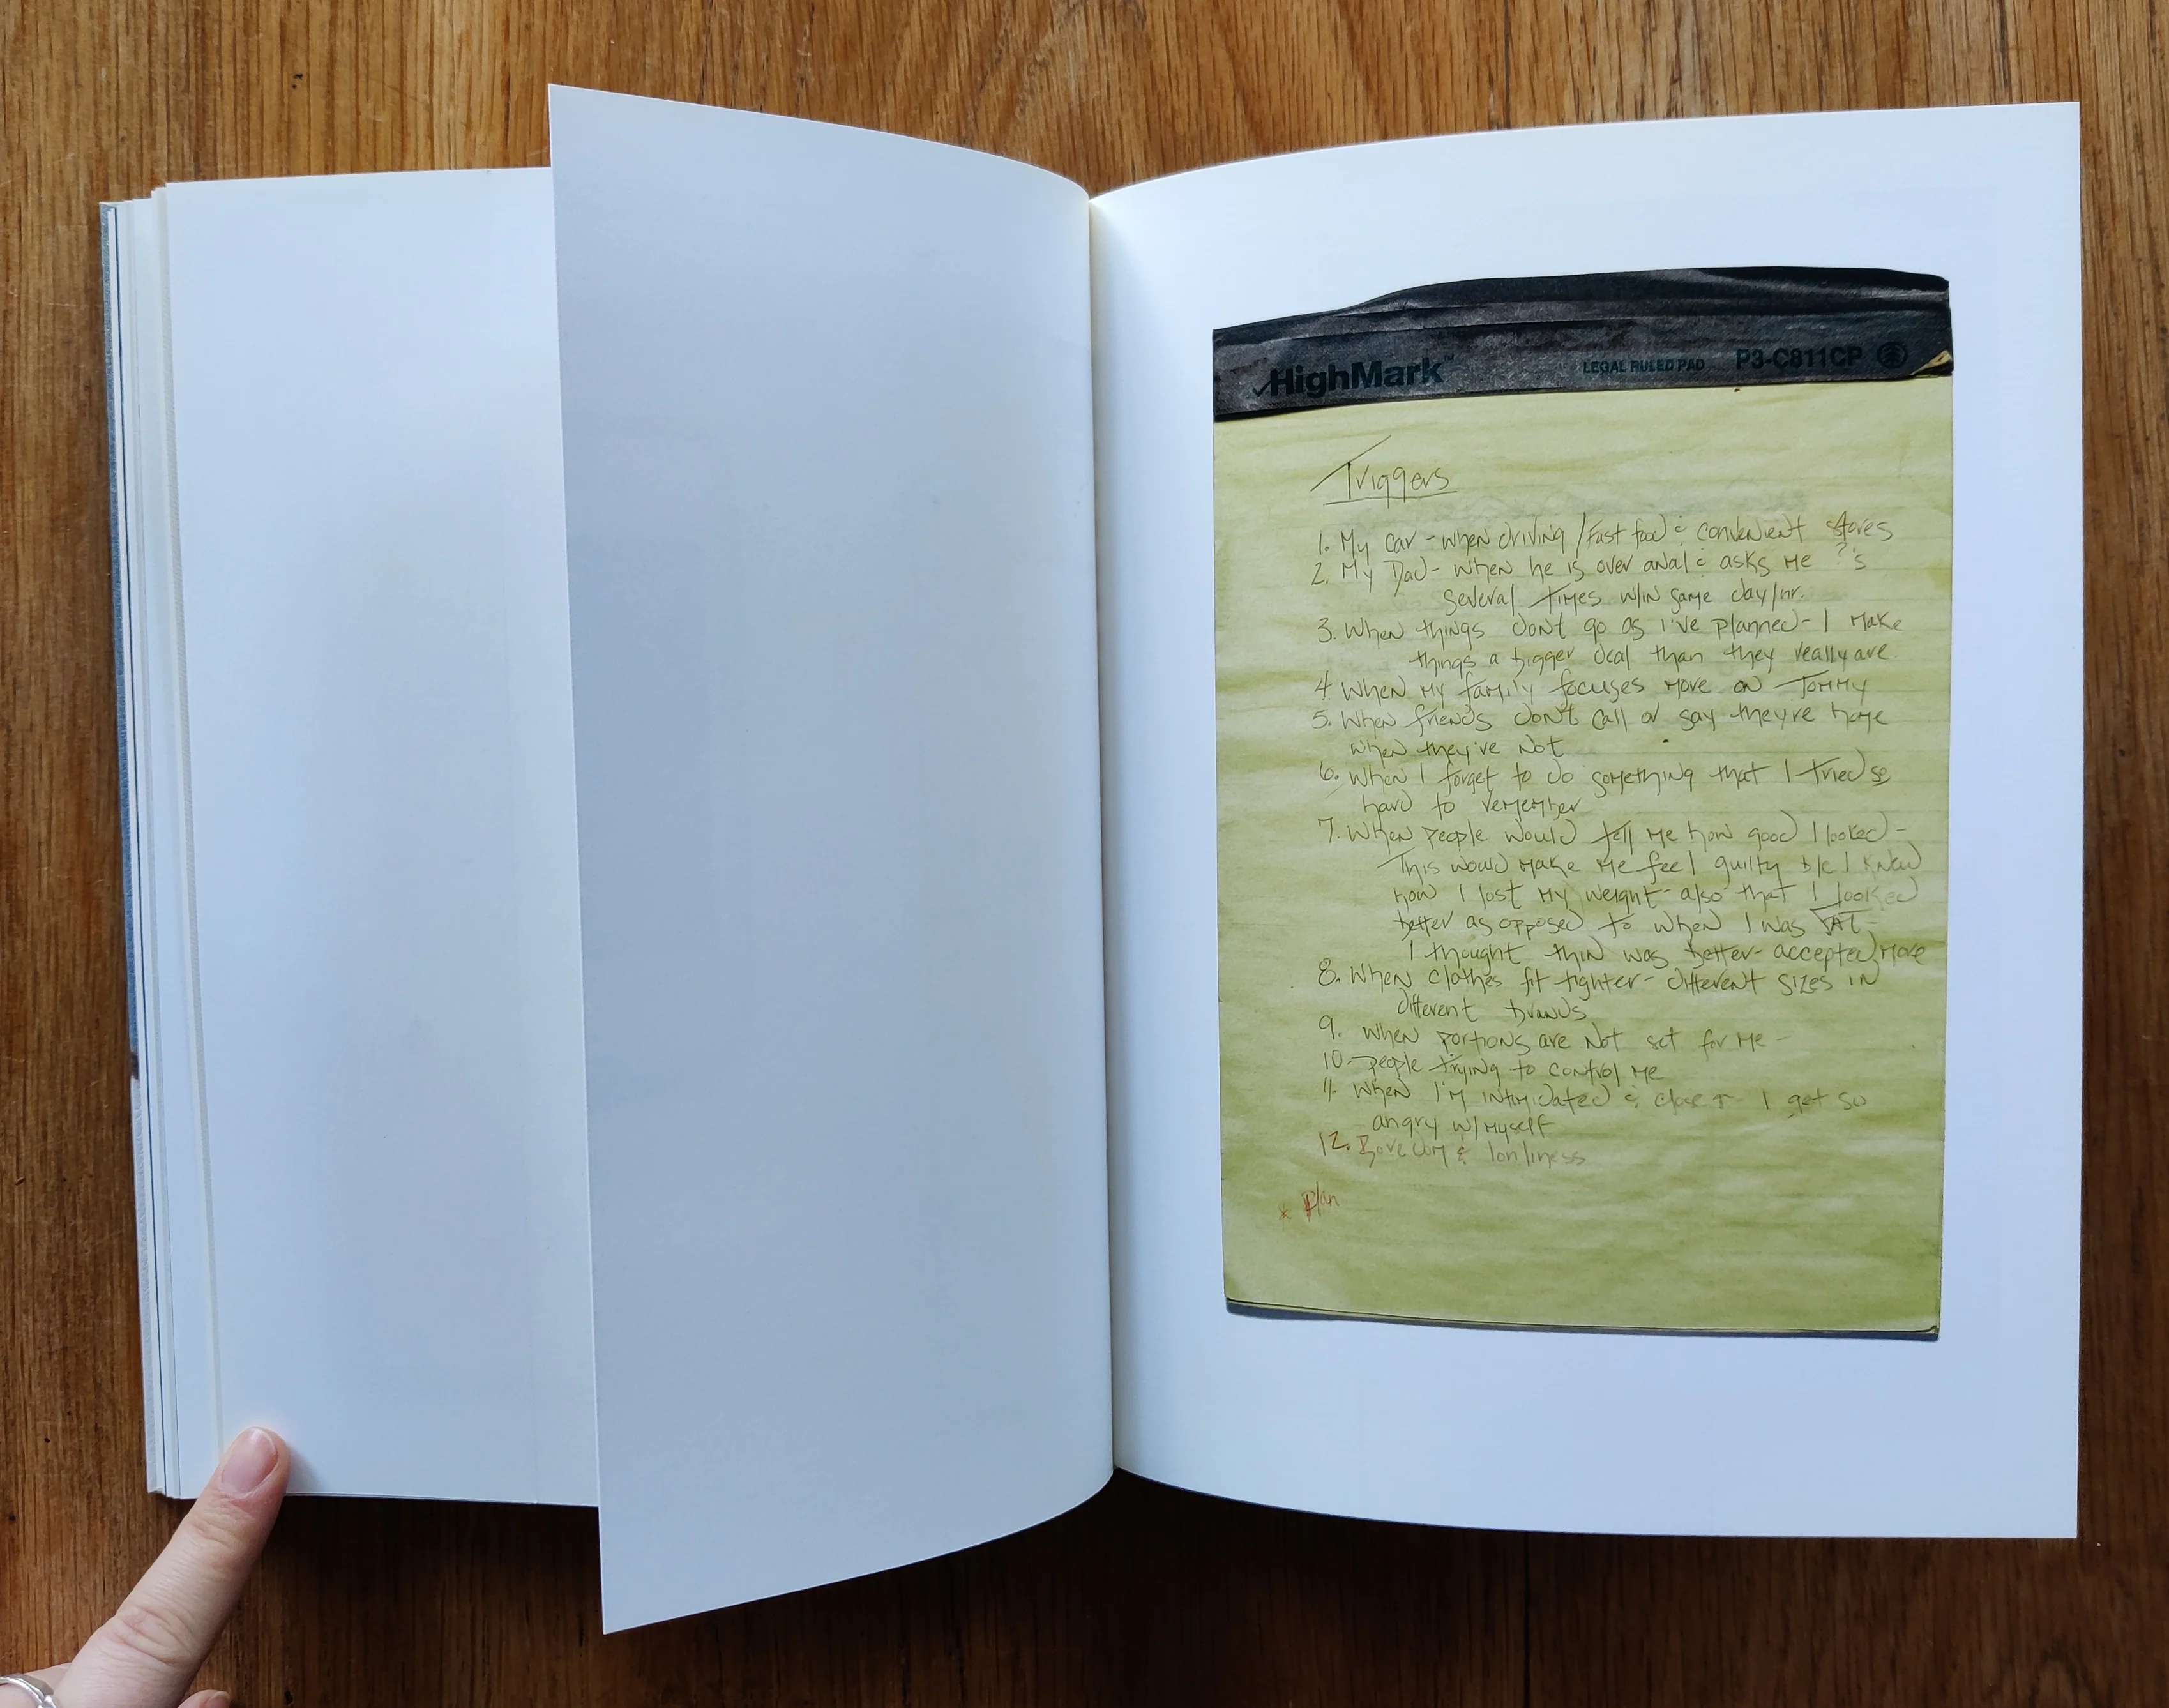 ✓HighMark™ LEGAL RULED PAD P3-C811CP
Triggers
1. My car - when driving / Fast food & convenient stores
2. My Dad - when he is over anal & asks me ?'s
several times w/in same day/hr.
3. When things don't go as I've planned - I make
things a bigger deal than they really are
4. When my family focuses more on Tommy
5. When friends don't call or say they're home
when they've not
6. When I forget to do something that I tried so
hard to remember
7. When people would tell me how good I looked -
This would make me feel guilty b/c I knew
how I lost my weight - also that I looked
better as opposed to when I was FAT -
I thought thin was better - accepted more
8. When clothes fit tighter - different sizes in
different brands
9. When portions are not set for me -
10. people trying to control me
11. When I'm intimidated & close - I get so
angry w/ myself
12. Boredom & lonliness
* Plan